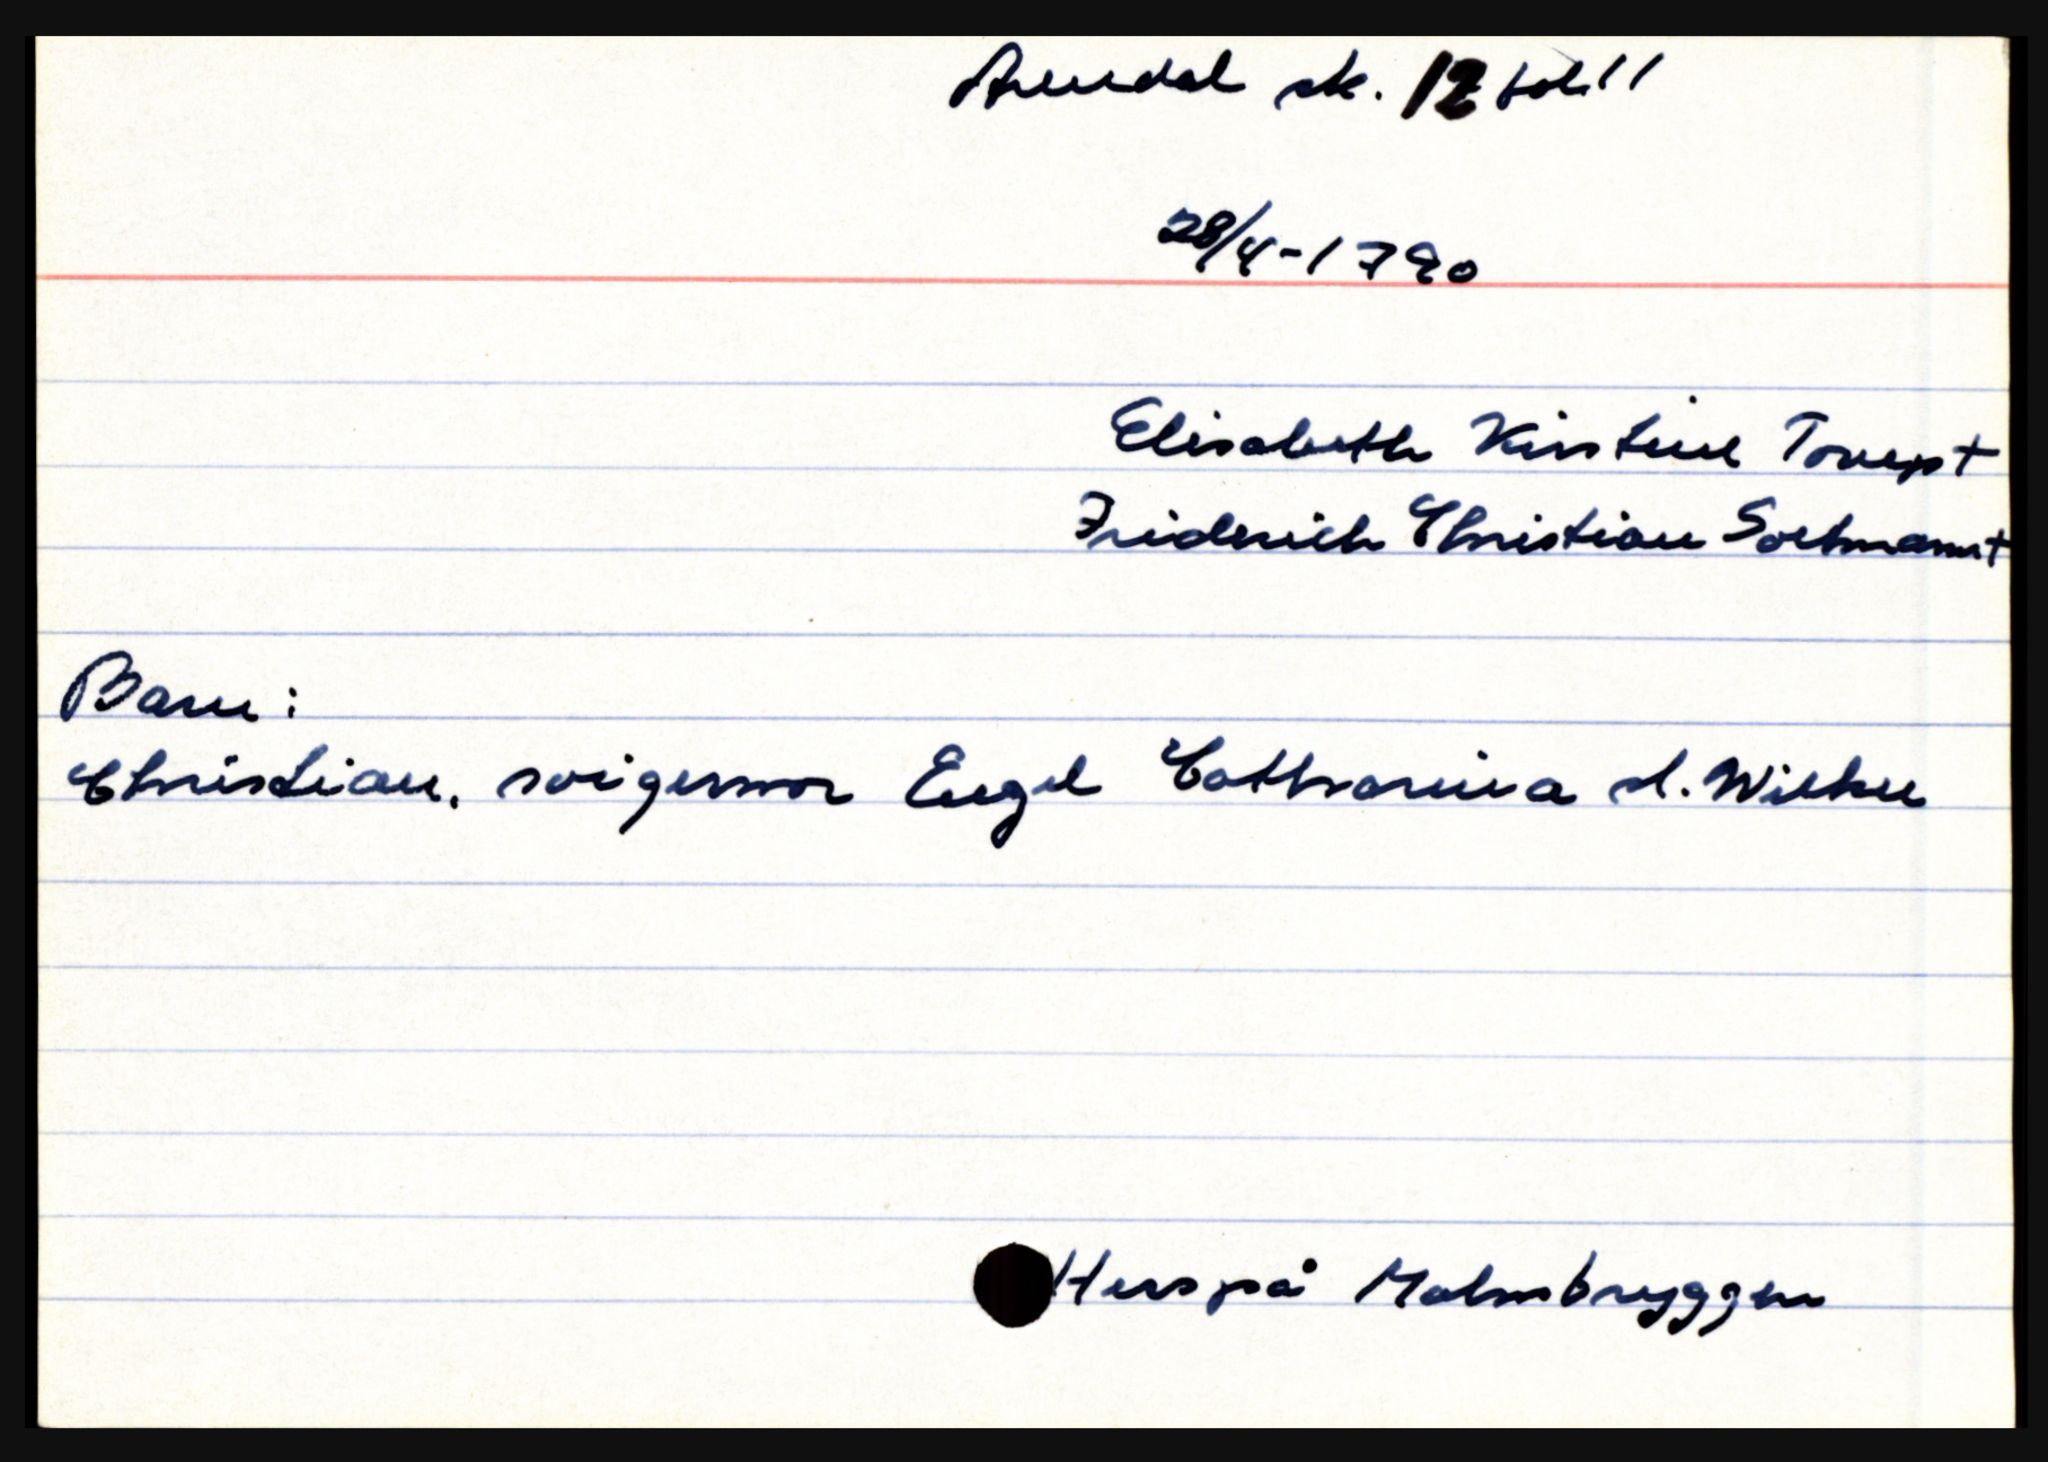 Arendal sk. 12 fol. 11
28/4-1790
Elisabeth Kirstine +
Friderich Christian Soetmann +
Barn:
Christian, svigermor Engel Catharina sl. Wilken
Hus på Malmbryggen